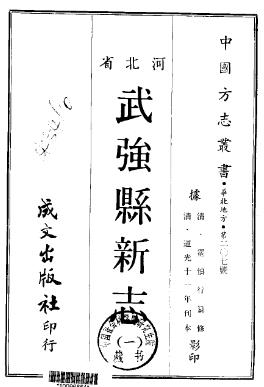 中國方志叢書・華北地方・第二〇七號
據
清・翟慎行翁修
清・道光十一年刊本
影印
河北省
武強縣新志
(一)
藏书
成文出版社印行